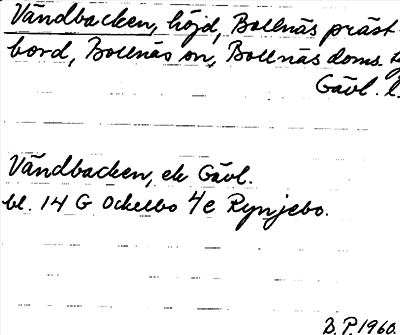 Vändbacken, höjd, Bollnäs präst-
bord, Bollnäs sn, Bollnäs doms. tg
Gävl. l.
Vändbacken, ek Gävl.
bl. 14 G Ockelbo 4e Rynjebo.
B.P. 1960.